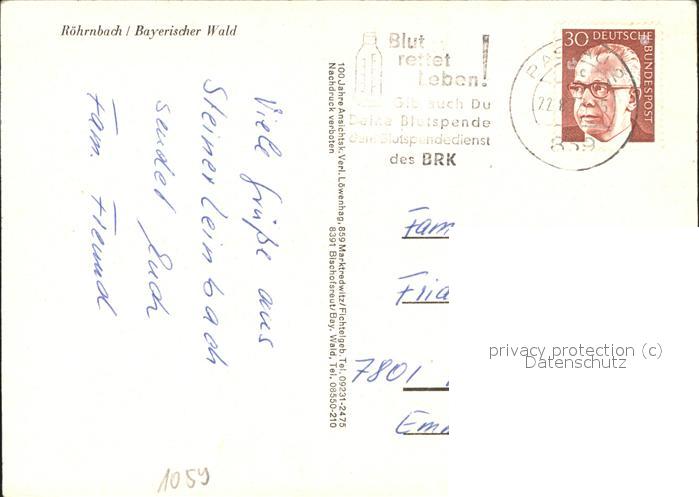 Röhrnbach / Bayerischer Wald
Viele Grüße aus
Steinerleinbach
sendet Euch
Fam. Freund
100 Jahre Ansichtsk.-Verl. Löwenhag, 859 Marktredwitz/Fichtelgeb. Tel. 09231-2475
Nachdruck verboten 8391 Bischofsreut/Bay. Wald, Tel. 08550-210
Blut
rettet
Leben!
Gib auch Du
Deine Blutspende
dem Blutspendedienst
des BRK
30 DEUTSCHE
BUNDESPOST
839
Fam
Fria
7801
privacy protection (c)
Datenschutz
1059